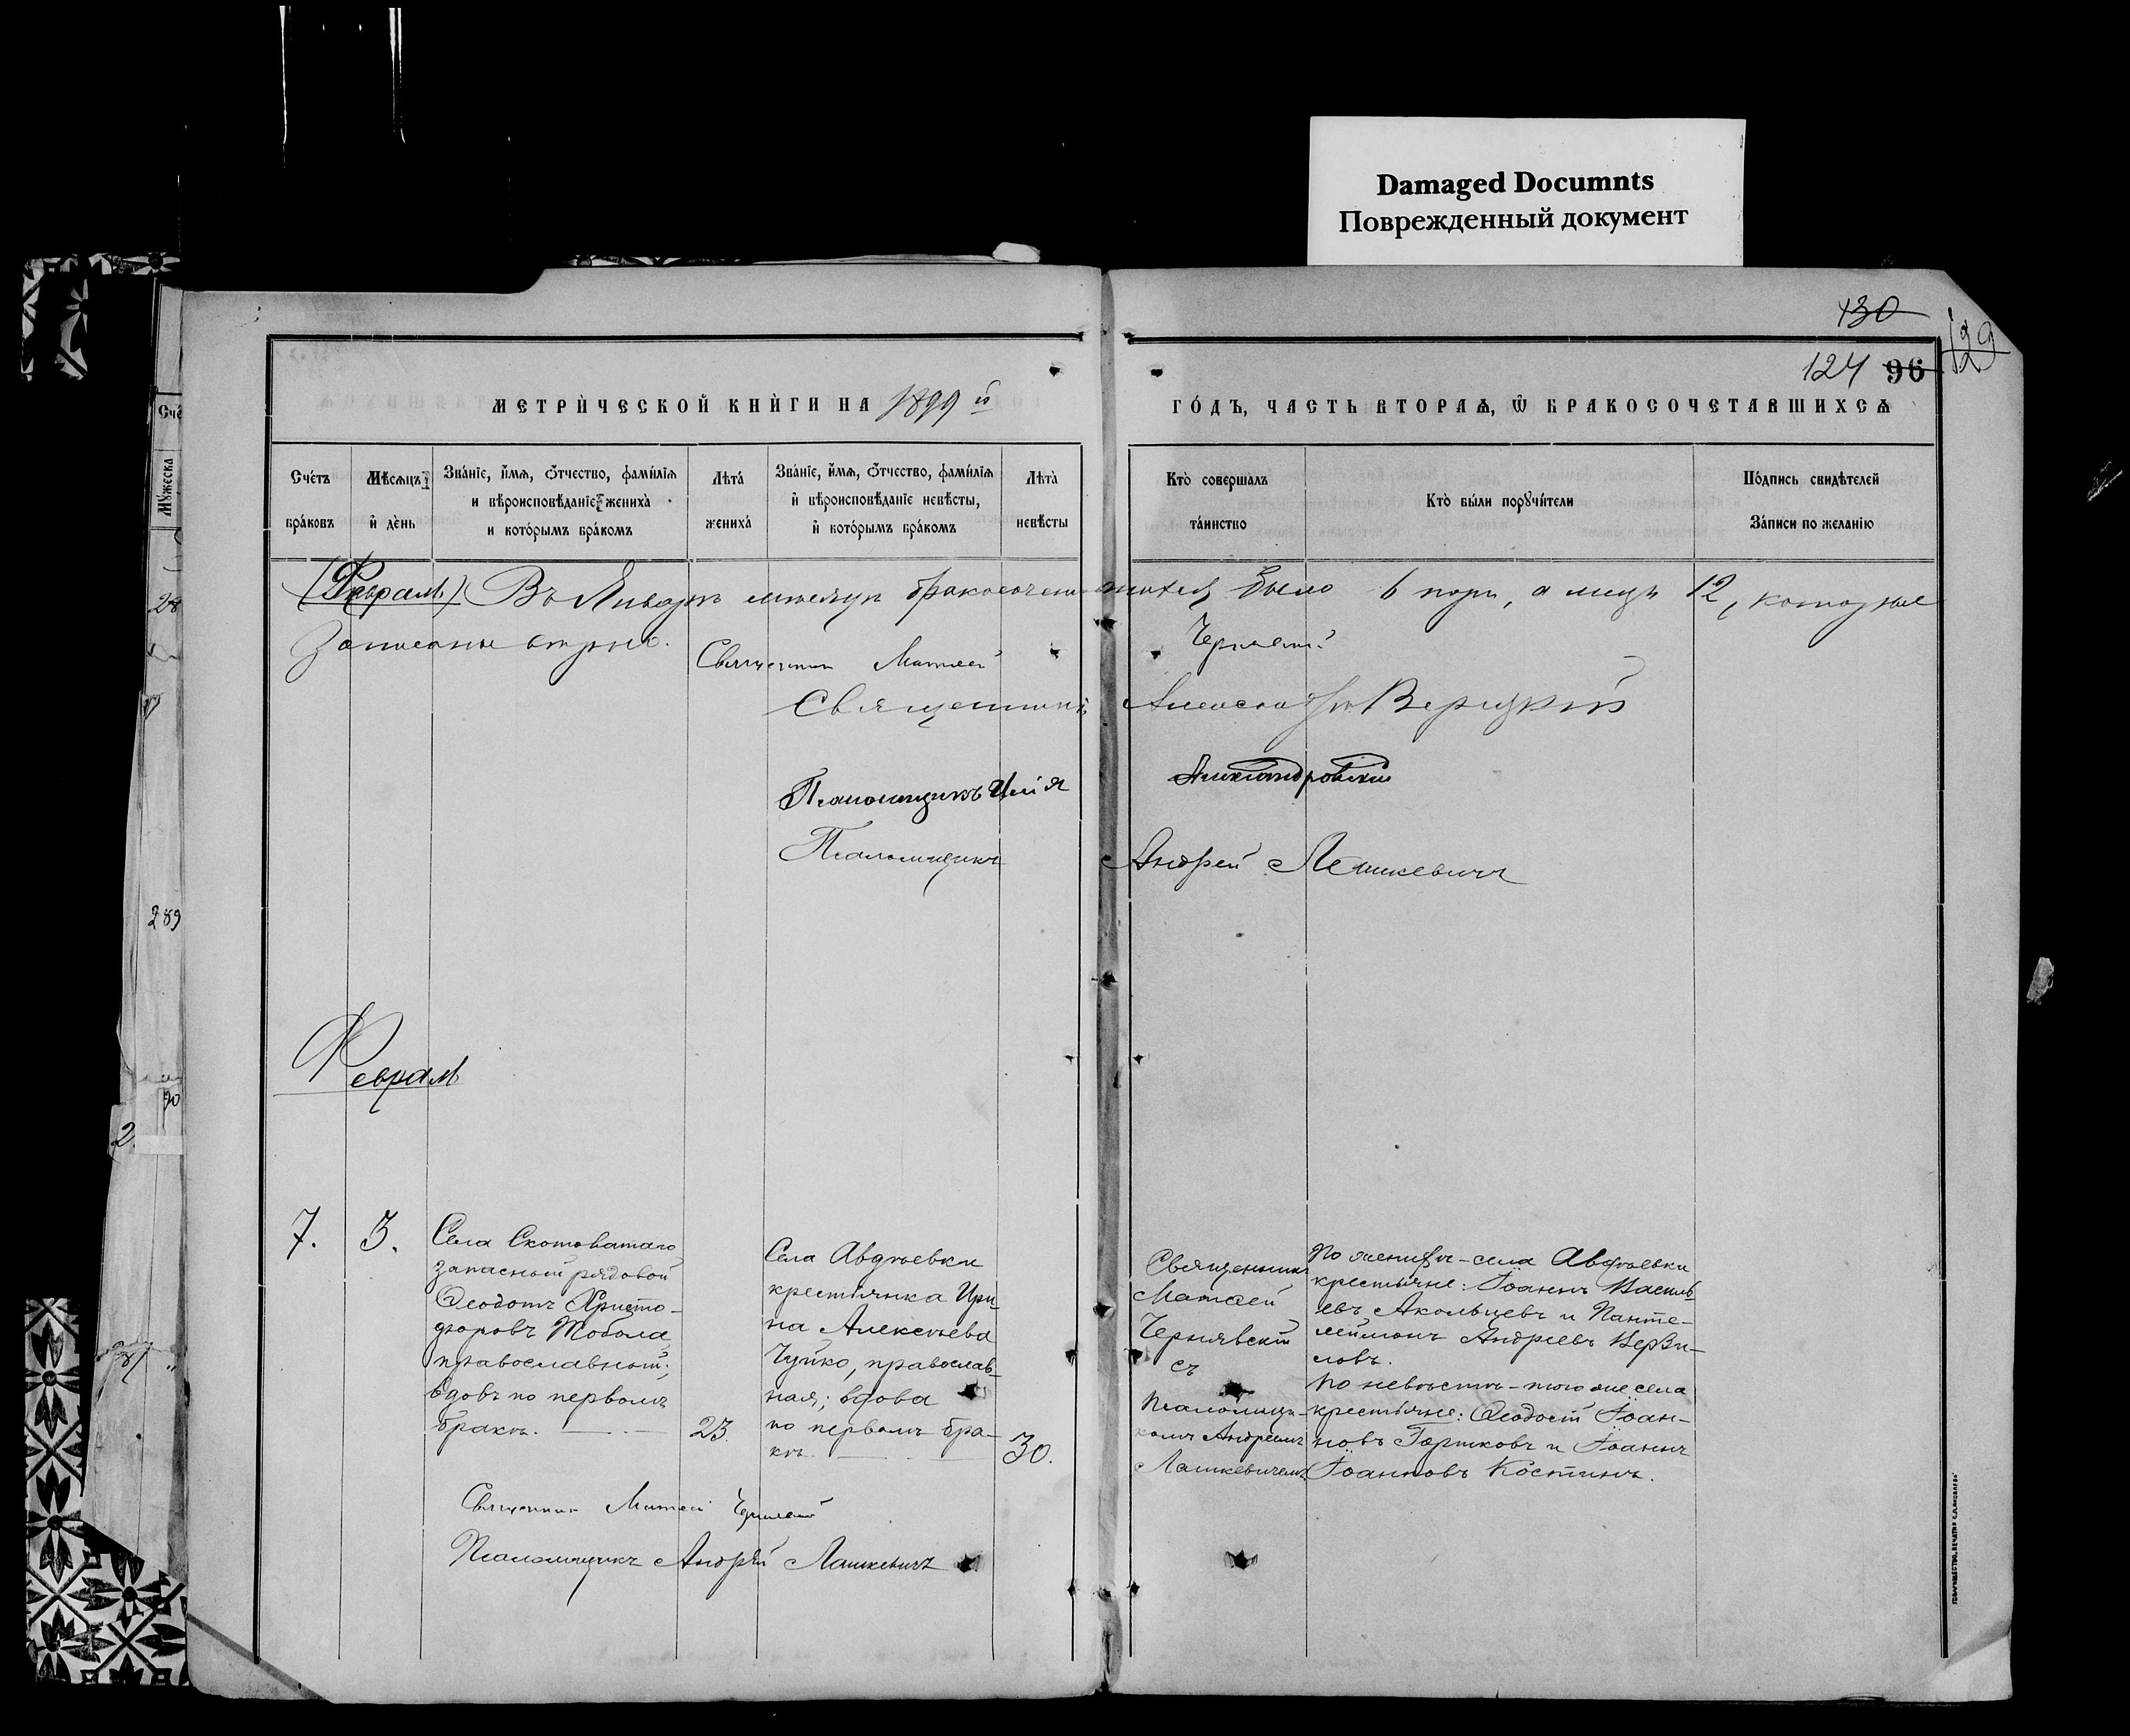 Damaged Documnts
Поврежденный документ
130
129
124 96
МЕТРИ́ЧЕСКОЙ КНИ́ГИ НА 1899 й
ГО́ДЪ, ЧАСТЬ ВТОРАѦ, Ѿ БРАКОСОЧЕТАВШИХСѦ
Сче́тъ бра́ковъ
Мѣ́сѧцъ и҆ де́нь
Зва́нїе, и҆́мѧ, ѻ҆́тчество, фами́лїѧ
и вѣроисповѣ́данїе жениха̀
и кото́рымъ бра́комъ
Лѣта̀ жениха̀
Зва́нїе, и҆́мѧ, ѻ҆́тчество, фами́лїѧ
и҆ вѣроисповѣ́данїе невѣ́сты,
и҆ кото́рымъ бра́комъ
Лѣта̀ невѣ́сты
Кто̀ соверша́лъ та́инство
Кто̀ бы́ли порꙋчи́тели
По́дпись свидѣ́телей
За́писи по жела́нїю
(Февраль) Въ Январѣ месяцѣ бракосочетавшихся было 6 паръ, а лицъ 12, которые
записаны вѣрно.
Священник Матѳей Чернявскій
Священникъ Александръ Верецкій
Псаломщикъ Илія Александровскій
Псаломщикъ Андрей Лашкевичъ
Февраль
7.
3.
Села Скотоватаго
запасный рядовой
Ѳеодотъ Христо-
форовъ Жобола
православный;
вдовъ по первомъ
бракѣ.
23.
Села Авдѣевки
крестьянка Ири-
на Алексѣева
Чуйко, православ-
ная; вдова
по первомъ бра-
кѣ.
30.
Священникъ
Матѳей
Чернявскій
съ
псаломщи-
комъ Андреемъ
Лашкевичемъ
По женихѣ - села Авдѣевки
крестьяне: Іоаннъ Василь-
евъ Акольцевъ и Панте-
леймонъ Андреевъ Верви-
ловъ.
По невѣстѣ - того же села
крестьяне: Ѳеодосій Іоан-
новъ Горшковъ и Іоаннъ
Іоанновъ Костинъ.
Священник Матѳей Чернявскій
Псаломщикъ Андрей Лашкевичъ
Счё
Мꙋжеска
28
289
90
2.